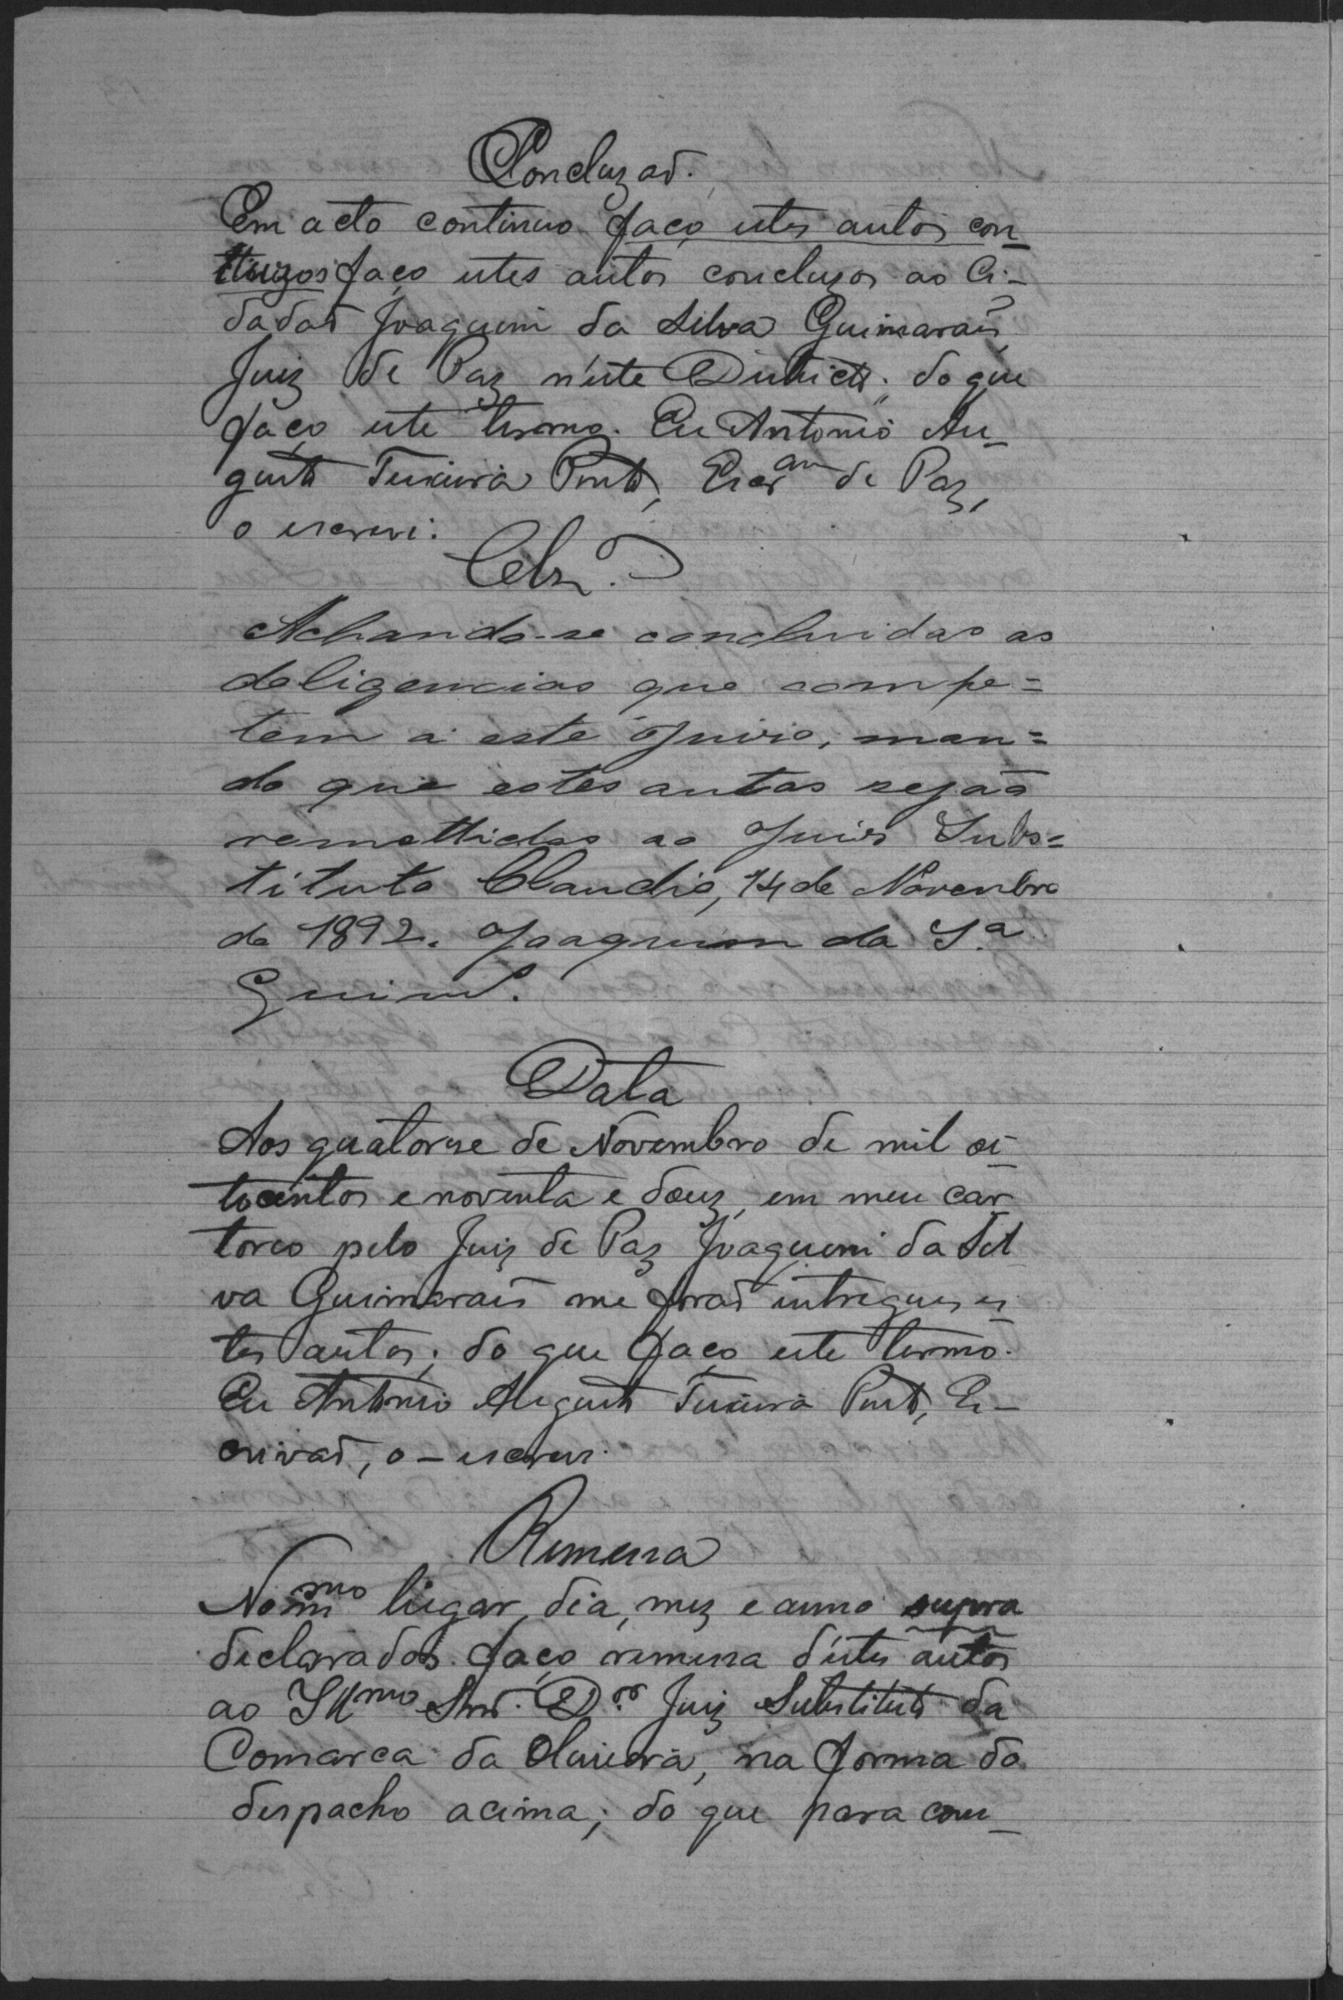 Concluzaõ.
Em acto continuo faço estes autos con
cluzos faço estes autos concluzos ao Ci-
dadaõ Joaquim da Silva Guimaraẽs,
Juiz de Paz n'este Districto, do que
faço este termo. Eu Antonio Au-
gusto Teixeira Pinto, Escram de Paz,
o escrevi.
Clsm.
Achando-se concluidas as
deligencias que compe=
tem a este Juiso, man=
do que estes autos sejaõ
remettidos ao Juis Subs=
tituto Claudio, 14 de Novenbro
de 1892. Joaquim da Sa
Guimes.
Data
Aos quatorse de Novembro de mil oi-
tocentos e noventa e douz, em meu car
torio pelo Juiz de Paz Joaquim da Sil
va Guimaraẽs me foraõ entregues es
tes autos; do que faço este termo.
Eu Antonio Augusto Teixeira Pinto, Es-
crivaõ, o-escrevi.
Remessa
No mmo lugar, dia, mez e anno supra
declarados. faço remessa d'estes autos
ao Illmo Snr. Dor Juiz Substituto da
Comarca da Oliveira, na forma do
despacho acima; do que para cons-